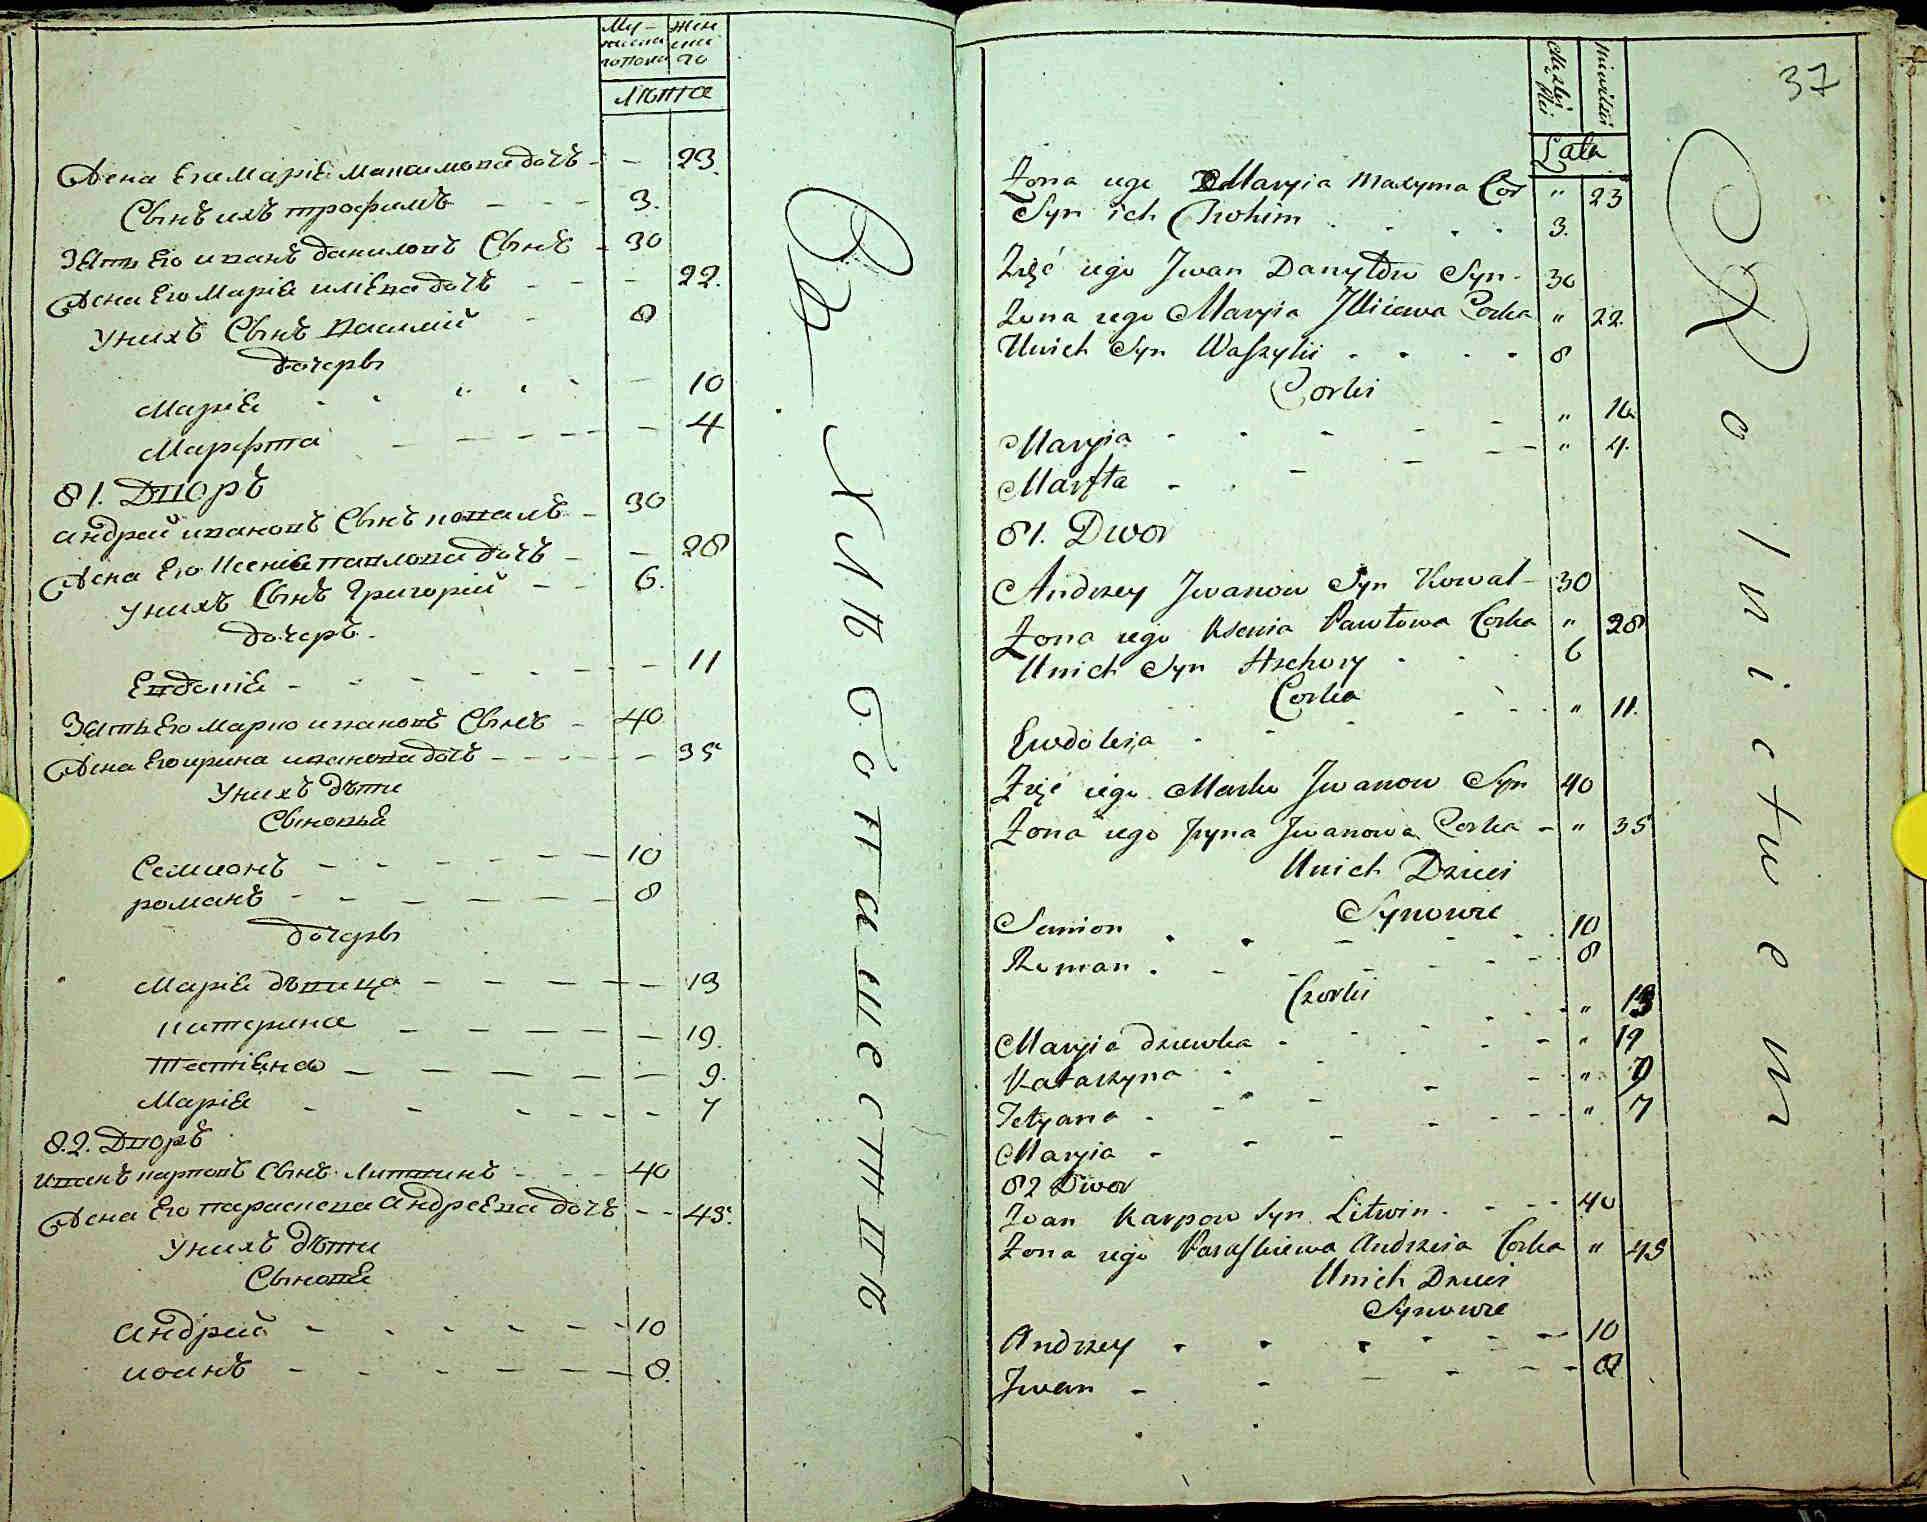 Му-
жеска
го пола
жен
ска
го
лѣта
Жена Его Маріѣ Макъсимова дочъ - - 23.
Сынъ ихъ трофимъ - - - 3.
Зять Его иванъ даниловъ Сынъ - 30
Жена Его Маріѣ илієва дочъ - - - 22.
Унихъ Сынъ василій - 8
дочеры
Маріѣ - - - - - 10
Марфта - - - - - - 4
81. Дворъ
андрей ивановъ Сынъ коваль - 30
Жена Его Ксеніѣ павлова дочъ - - 28
Унихъ Сынъ Григорій - - 6.
дочеръ.
Евдокіѣ - - - - - - - 11
Зять Его Марко ивановъ Сынъ - 40
Жена Его ирина иванова дочъ - - - - - 35
Унихъ дѣти
Сыновья
Семионъ - - - - - - 10
романъ - - - - - - 8
дочеры
Маріѣ дѣвица - - - - - - 13
катерина - - - - - - 19.
Татіѣна - - - - - - 9.
Маріѣ - - - - - - 7
82. Дворъ
иванъ карповъ Сынъ Литвинъ - - - 40
Жена Его параскева андреѣва дочъ - - 45.
Унихъ дѣти
Сыновѣ
андрей - - - - - - 10
иоанъ - - - - - - 8.
37
Męzkiey
Płci
Lata
Zona iego Maryia Maxyma Cor " 23
Syn ich Trohim . . . . 3.
Zięć iego Jwan Danyłow Syn - 30
Zona iego Maryia Jlliiewa Corka " 22.
Unich Syn Waszylii . . . . 8
Corki
Maryia - - - - - " 10
Marfta - . - - - " 4.
81. Dwor
Andrzey Jwanow Syn Kowal - 30
Zona iego Ksenia Pawłowa Corka " 28
Unich Syn Hrehory . . . 6
Corka
Ewdokia . - - - - " 11.
Zięć iego Marko Jwanow Syn 40
Zona iego Jryna Jwanowa Corka - " 35
Unich Dzieci
Synowie
Semion . . - - - . 10
Roman . - - - - - - 8
Czorki
Maryia dziewka - - - - - " 13
Katarzyna - - - - - " 19
Tetyana - - - - - " 9
Maryia - - - - - " 7
82 Dwor
Jwan Karpow Syn Litwin . - - - 40
Zona iego Paraskiewa Andrzeia Corka " 45
Unich Dzieci
Synowie
Andrzey . . . . - - 10
Jwan - - - - - - 8